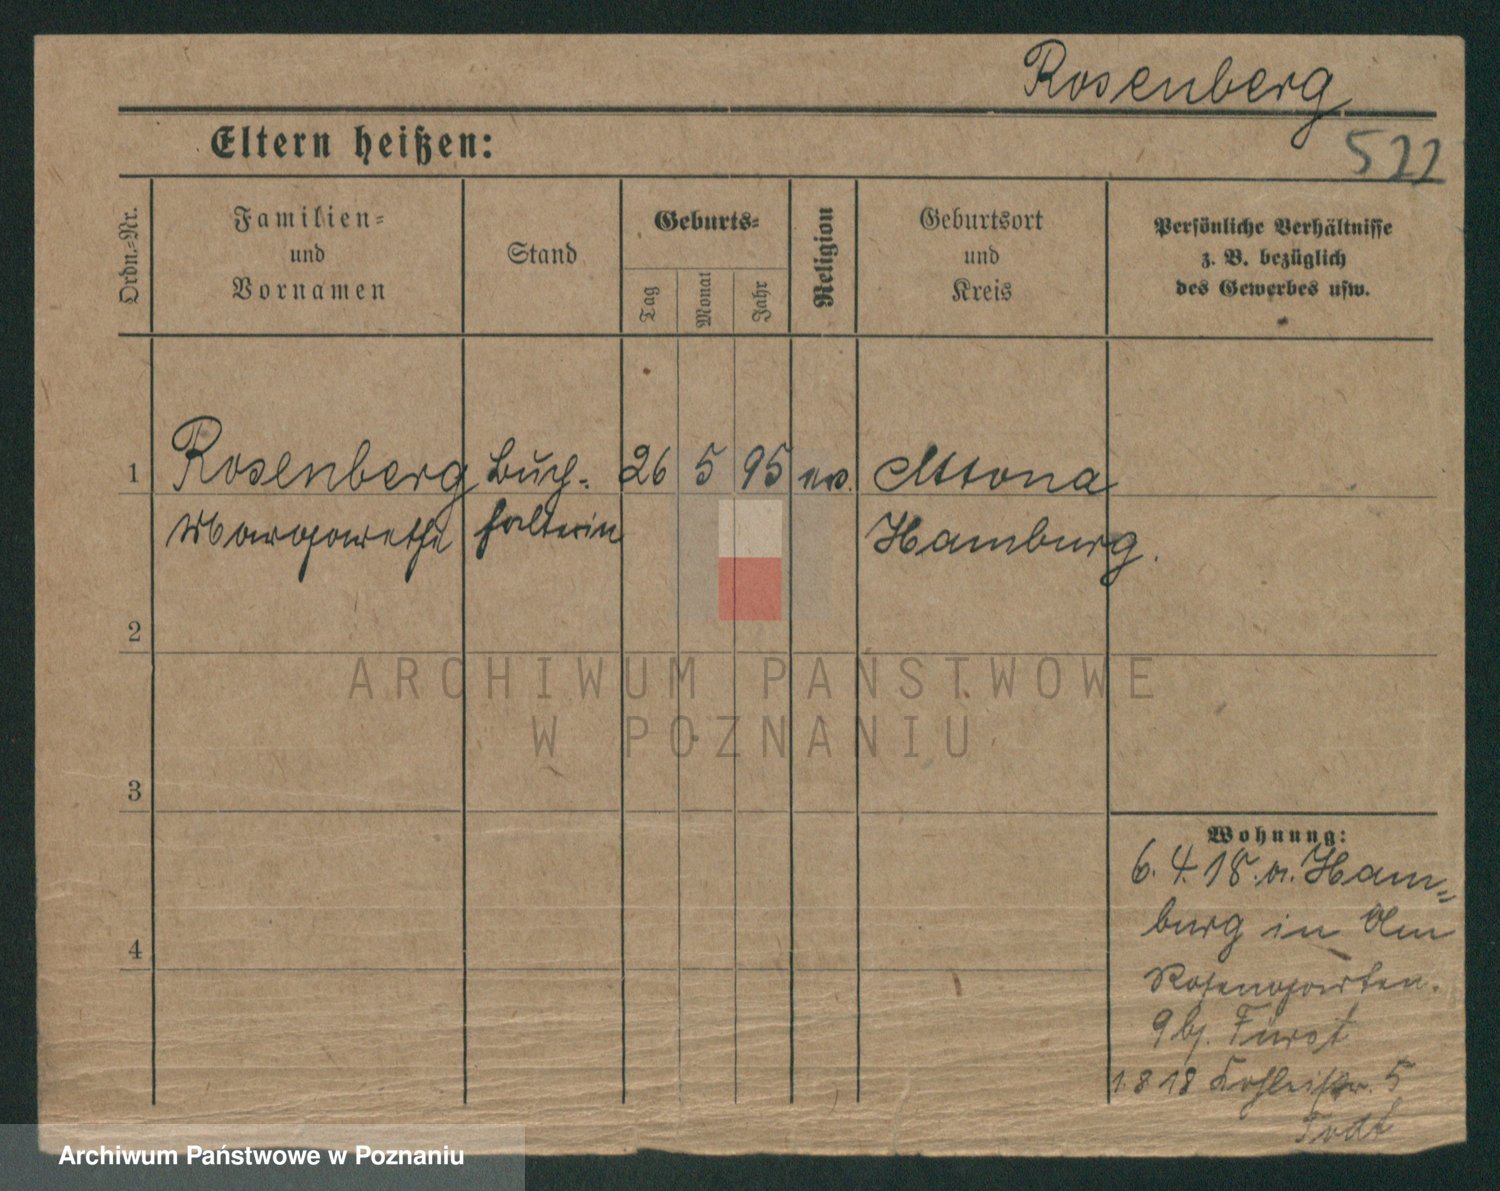 Rosenberg
Eltern heißen:
522
Ordn.-Nr.
Familien-
und
Vornamen
Stand
Geburts-
Tag
Monat
Jahr
Religion
Geburtsort
und
Kreis
Persönliche Verhältnisse
z. B. bezüglich
des Gewerbes usw.
1 Rosenberg Buch- 26 5 95 ev. Altona
Margarethe halterin Hamburg.
2
ARCHIWUM PAŃSTWOWE
W POZNANIU
3
Wohnung:
6. 4. 18. v. Ham-
burg in Am
Rosengarten.
9 bj. Fürst
4
1. 8 18 5
Todt
Archiwum Państwowe w Poznaniu